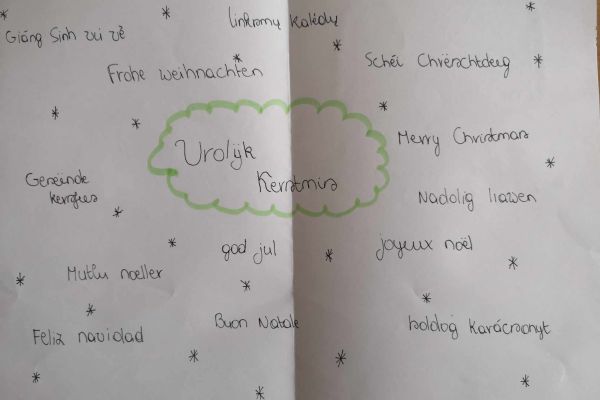 linksmų Kalėdų
Giáng Sinh vui vẻ
Schéi Chrëschtdeeg
Frohe weihnachten
Merry Christmas
Vrolijk
Kerstmis
Geseënde
kersfees
Nadolig llawen
god jul
joyeux noël
Mutlu noeller
Buon Natale
boldog karácsonyt
Feliz navidad